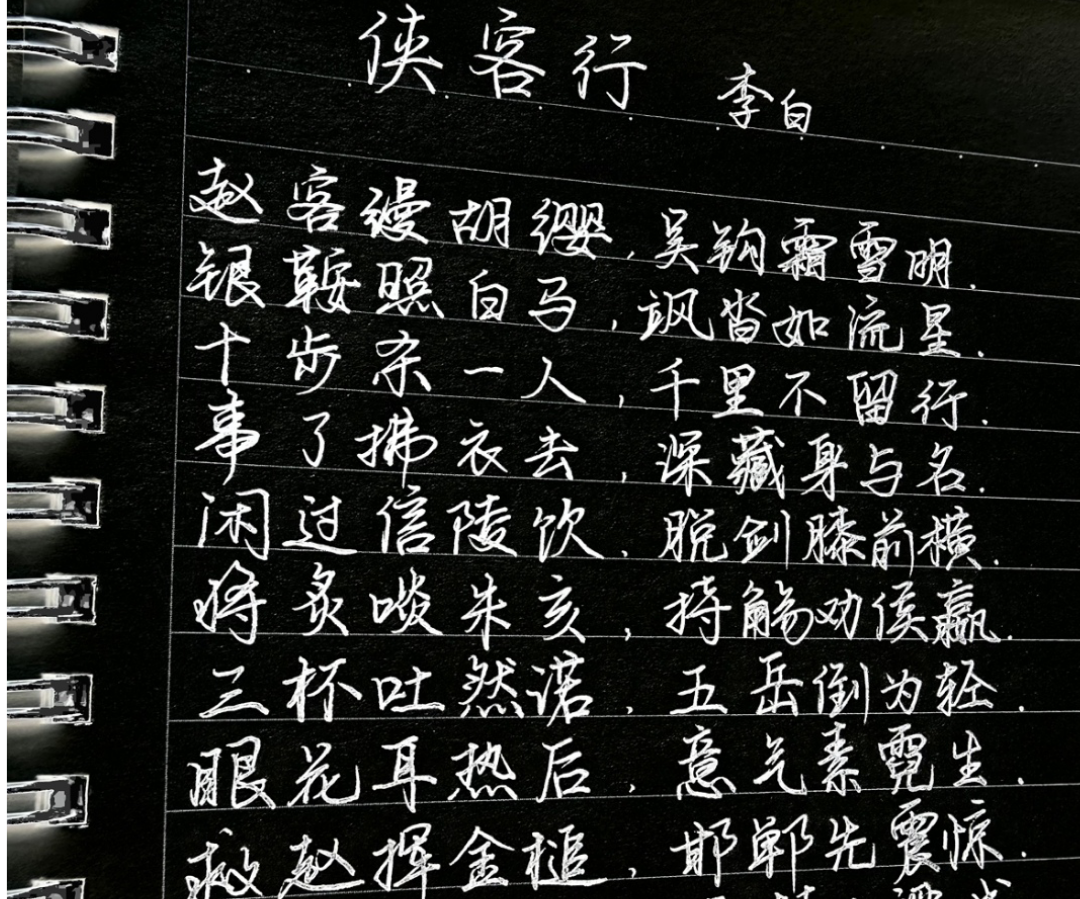 侠客行 李白
赵客缦胡缨,吴钩霜雪明.
银鞍照白马,飒沓如流星.
十步杀一人,千里不留行.
事了拂衣去,深藏身与名.
闲过信陵饮,脱剑膝前横.
将炙啖朱亥,持觞劝侯嬴.
三杯吐然诺,五岳倒为轻.
眼花耳热后,意气素霓生.
救赵挥金槌,邯郸先震惊.